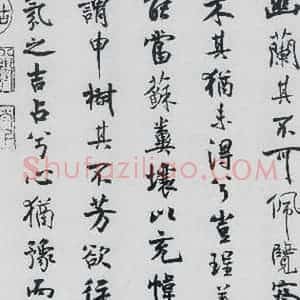 幽蘭其不可佩覽察
木其猶未得兮豈珵美
當蘇糞壤以充幃
謂申椒其不芳欲從
氛之吉占兮心猶豫而
Shufaziliao.com